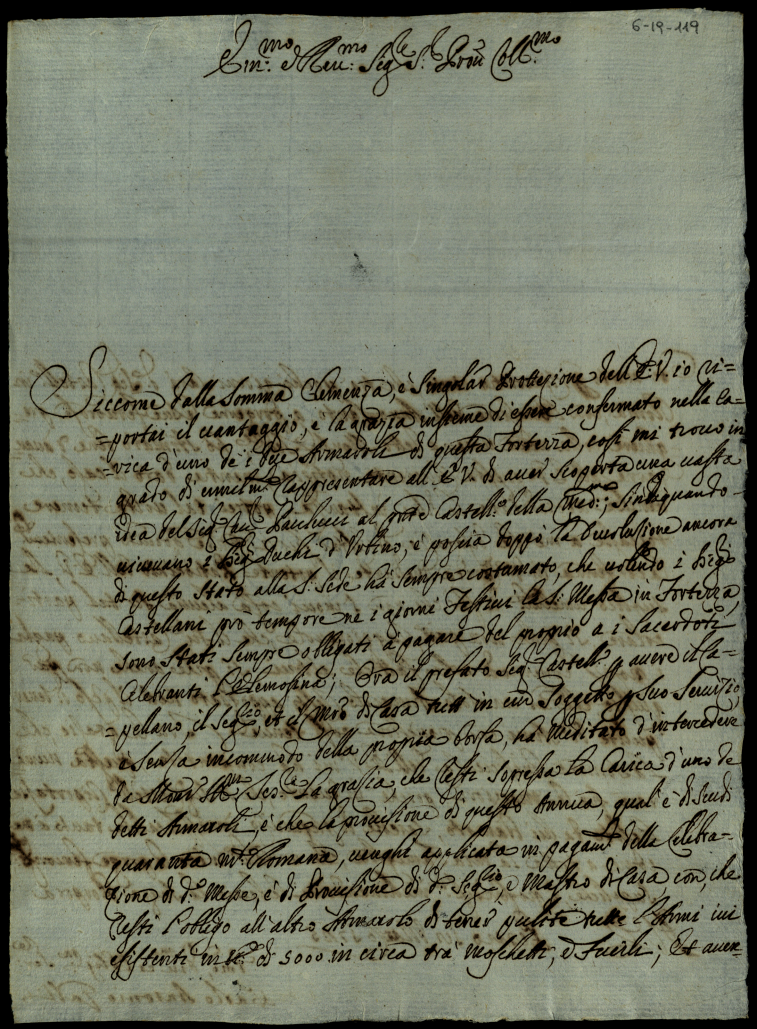 6-19-119
Em.mo e Reu.mo Sig.re S.r Pron Coll.mo
Siccome dalla somma Clemenza, è singolar Prottezione dell'E.V. io ri=
=portai il uantaggio, e la grazia insieme di essere confermato nella Ca=
=rica d'uno de i due Armaroli di questa Fortezza, così mi trouo in
grado di umilm.te rappresentare all'E.V. di auer scoperta una uasta
idea del Sig.r Paulucci al pnte Castell.o della med.ma; Sin quando
uiueuano i Sig.ri Duchi d'Urbino, è poscia doppo la Deuoluzione ancora
di questo Stato alla S. Sede hà sempre costumato, che uolendo i Sig.ri
Castellani prò tempore ne i giorni Festiui la S. Messa in Fortezza,
sono stati sempre obligati à pagare del proprio a i Sacerdoti
Celebranti l'Elemosina; Ora il prefato Sig.r Castell.o p auere il Ca=
=pellano, il Seg.rio, et il Mro di Casa tutt'in un Soggetto p suo Seruizio,
è senza incommodo della propria borsa, hà meditato d'intercedere
da Mons.r Tes.re la grazia, che resti sopressa la Carica d'uno de
detti Armaroli, è che la prouisione di questo Annua, qual'è di scudi
quaranta m.ta Romana, uenghi applicata in pagam.to della Celebra=
zione di d.e Messe, è di Prouisione di d.o Seg.rio, e Mastro di Casa, con che
resti l'obligo all'altro Armarolo di tener pulite tutte l'Armi iui
esistenti in n.o di 5000 in circa trà moschetti, e Fucili; Et auen=